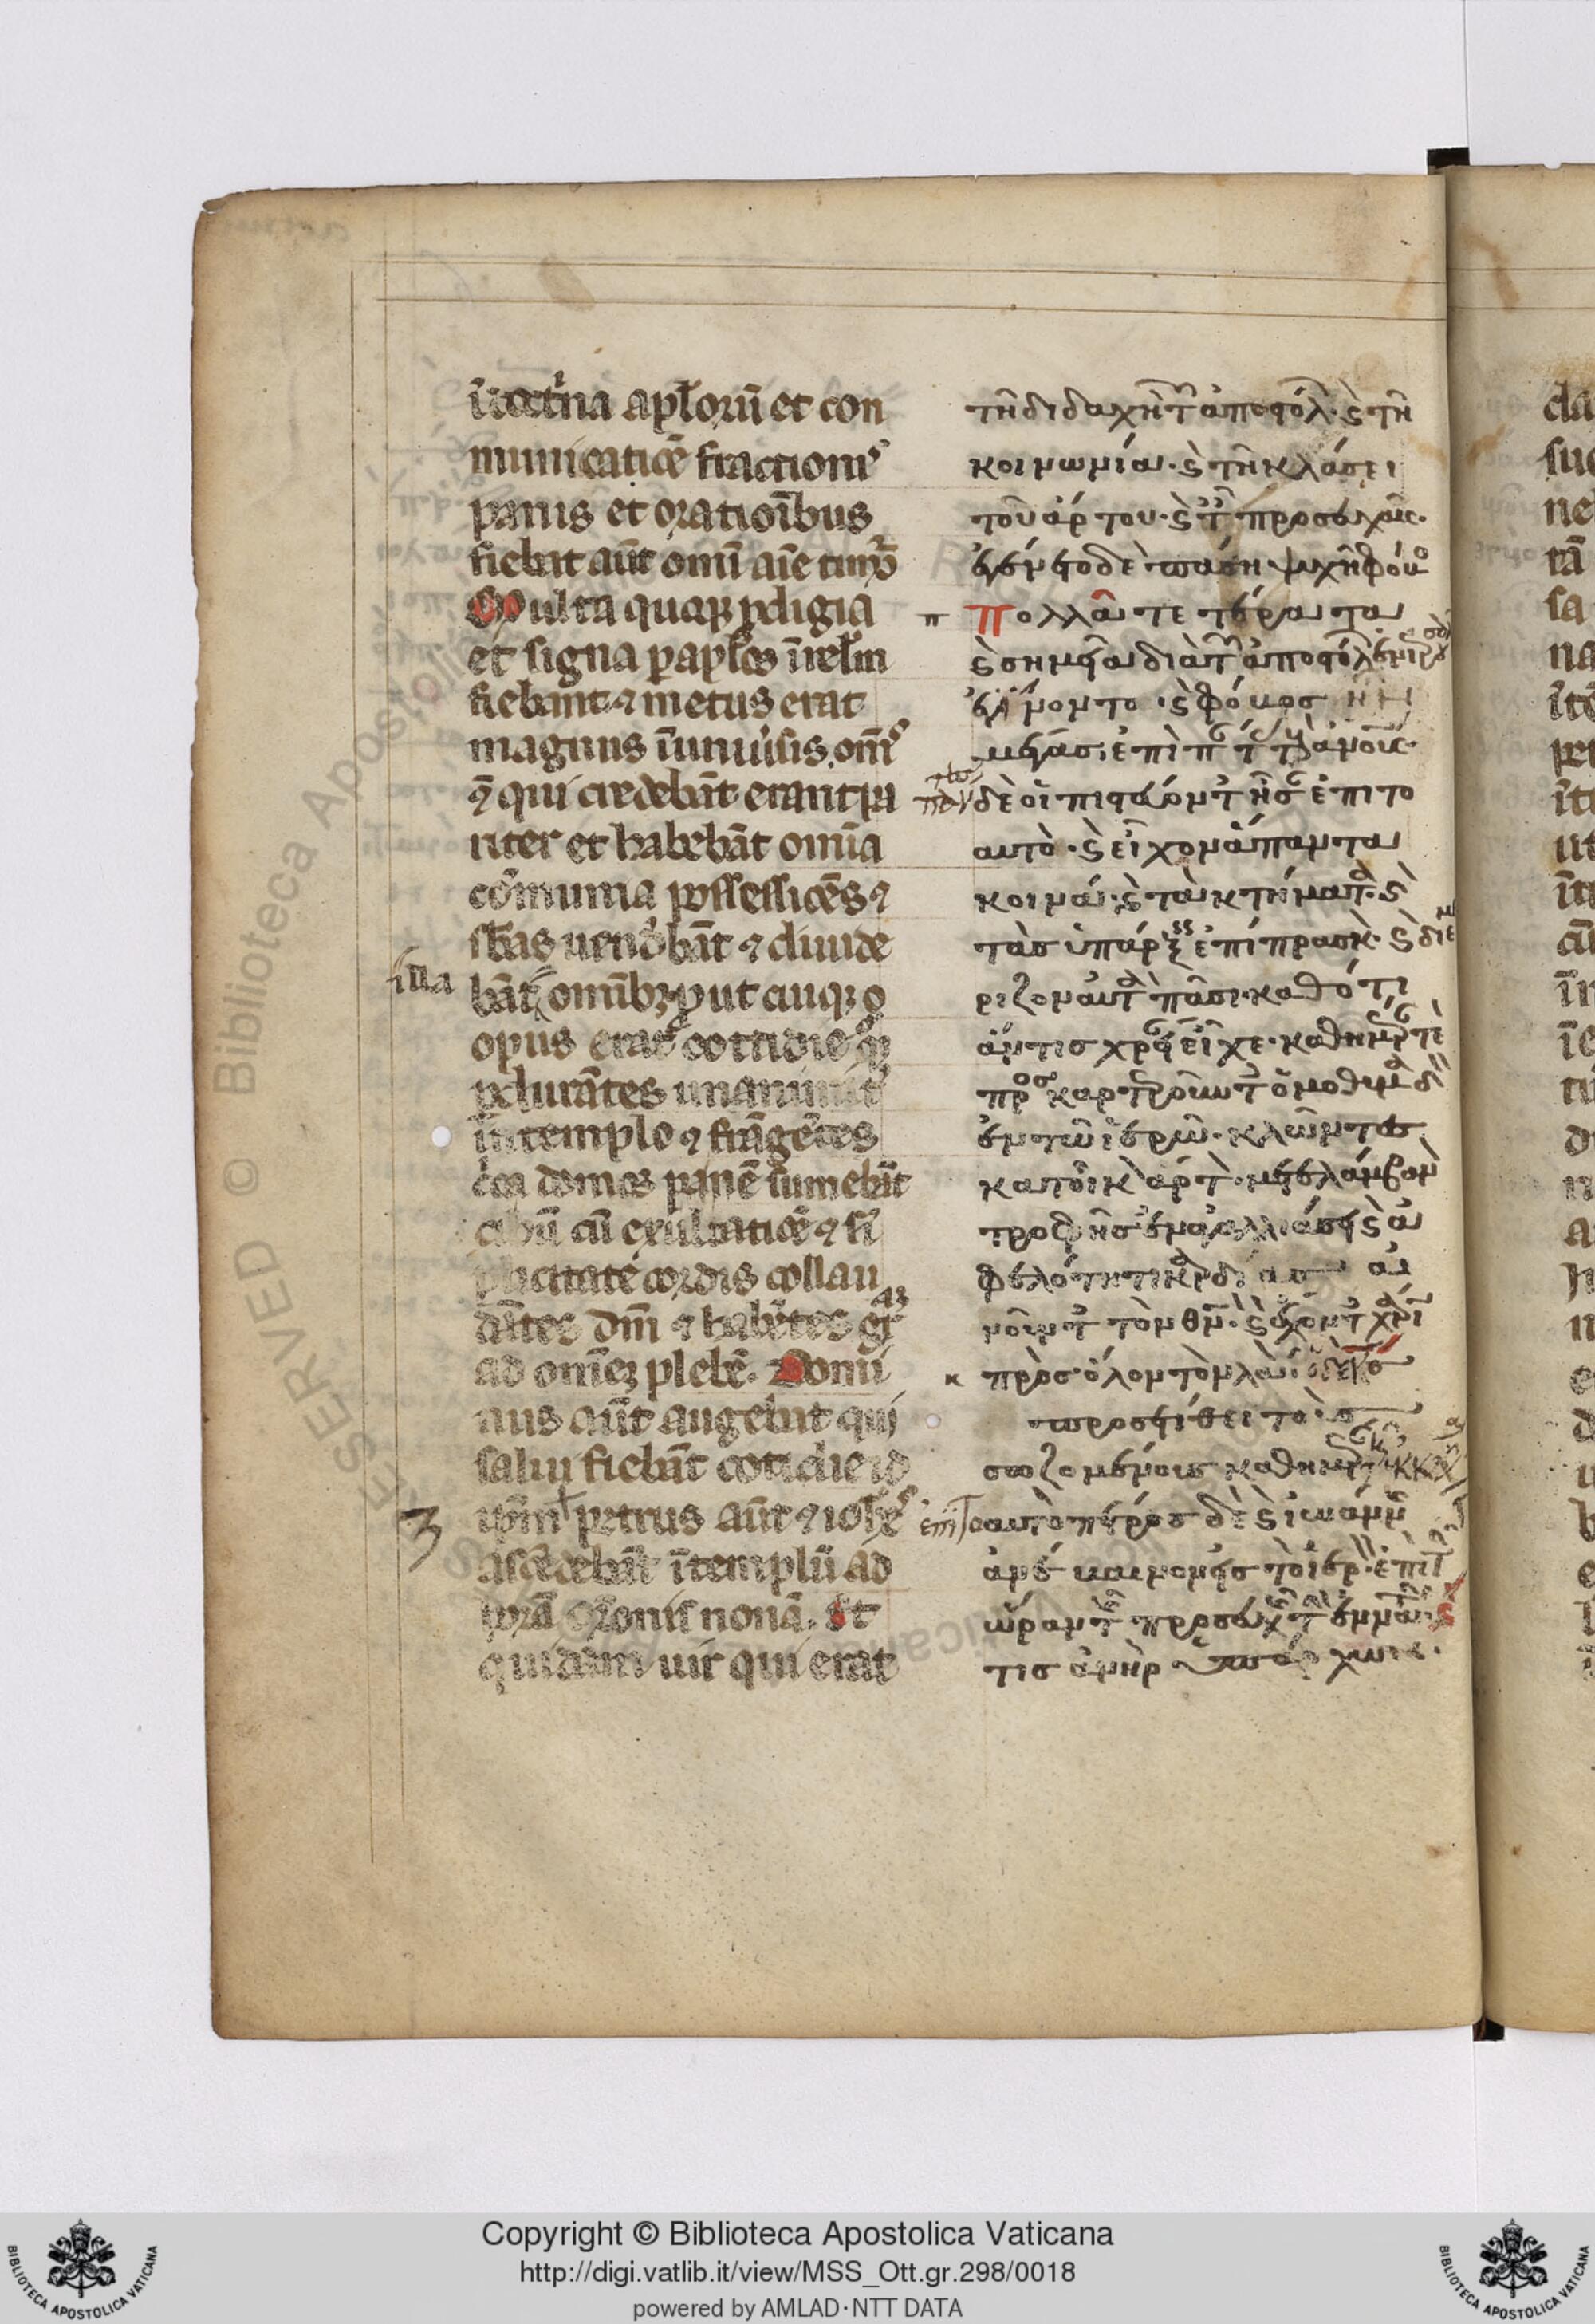 ī doctͥna apl̄oꝝ et con
municatiōe fractionis
panis et oratioībus
fiebat aūt omī aīe timor
Multa quoqꝫ ꝓdigia
et signa ꝑ apl̄os ī ieɫm
fiebant ⁊ metus erat
magnus ī uniūsis om̄s
qui credebāt erant pa
riter et habebāt omīa
cōmunia possessiōes ⁊
sb̄as uendebāt ⁊ diuide
illa
bāt omībꝫ ꝓut cuiqꝫ o
opus erat cottidie qꝫ
ꝑdurātes unanimiť
ī templo ⁊ frāgētes
ca domos panē sumebāt
cibū cū exultatiōe ⁊ sī
plicitate cordis collau
dātes dm̄ ⁊ habētes gr̄az
ad omēꝫ plebē. Domi
nus aūt augebat qui
salui fiebāt cotidie id
3
ip̄m petrus aūt ⁊ ioh̄es
ascēdebāt ī templū ad
horā or̄onis nonā. Et
quidam uir qui erat
τῆ διδαχῆ τῶν ἀποστόλ· ϛ τῆ
κοινωνία· ϛ τῆ κλάσει
τοῦ ἄρτου· ϛ τ προσευχαῖς·
ἐγένετο δὲ πάση ψυχῆ φόβο
π
Πολλά τε τέρατα
ϛ σημεῖα διὰ τ ἀποστόλ
ἐγίνοντο· ϛ φόβος ἦν
μέγας ἐπὶ π
δὲ οἱ πιστεύοντ ἦσ ἐπιτο
αυτὸ· ϛ εἶχον ἅπαντα
κοινά· ϛ τὰ κτήματ· ϛ
τὰς ὑπάρξ ἐπίπρασκ· ϛ διεμ
ριζον αὐτ πᾶσι· καθότι
ἄν τις χρεί εἶχε· καθημ τὲ
προσκαρτεροῦντ ὁμοθυμαδ
ἐν τῶ ἱερῶ· κλῶντες
κατοἶκ ἄρτ· μετελάμβανον
τροφῆς ἐν ἀγαλλιάσει ϛ ἀ
φελότητι καρδίας αἰ
νοῦντ τὸν θν· ϛ ἔχοντ χάρι
κ
πρὸς ὅλον τὸν λαόν
προσετίθει τοὺς
σωζομένους καθημ
ἐπιτοαυτὸ πέτρος δὲ ϛ ἰωάνν
ἀνέβαινον εἰς τὸ ἱερ· ἐπὶ τ
ὥραν τ προσευχ τ ἐννάτ
τις ἀνὴρ
Copyright © Biblioteca Apostolica Vaticana
http://digi.vatlib.it/view/MSS_Ott.gr.298/0018
powered by AMLAD·NTT DATA
BIBLIOTECA APOSTOLICA VATICANA
BIBLIOTECA APOSTOLICA VATICANA